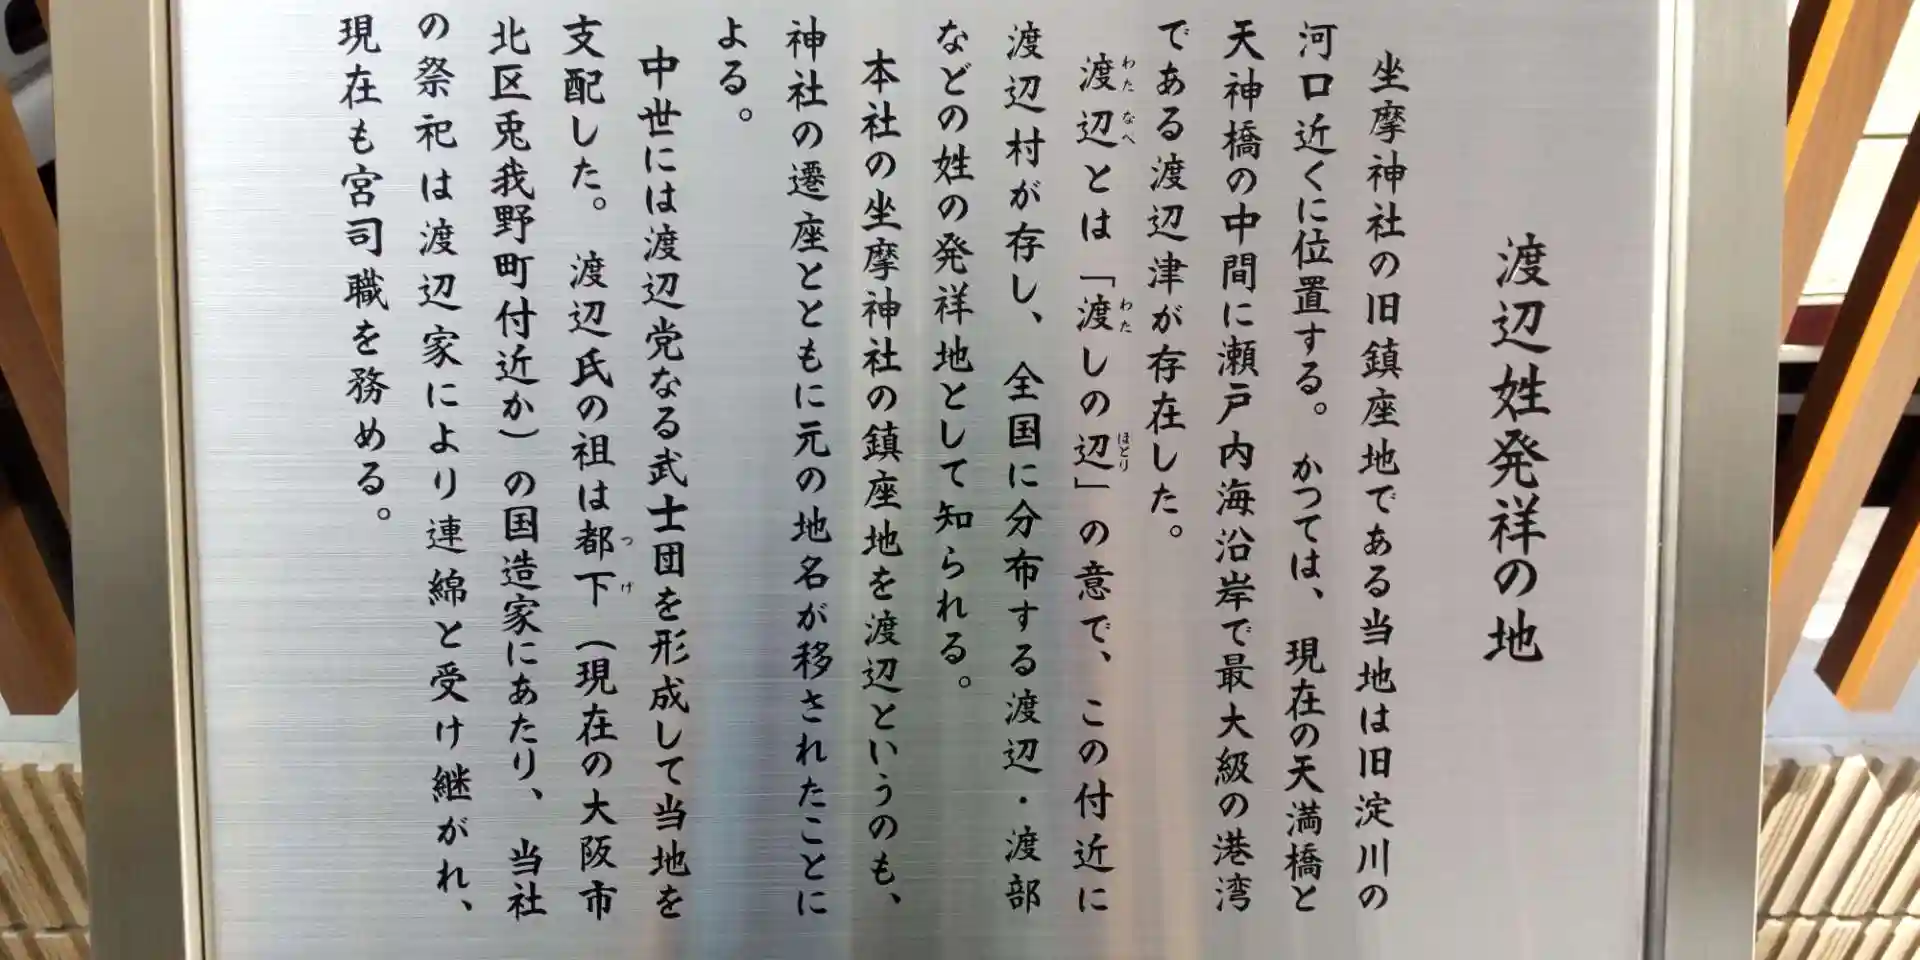 渡辺姓発祥の地
坐摩神社の旧鎮座地である当地は旧淀川の
河口近くに位置する。かつては、現在の天満橋と
天神橋の中間に瀬戸内海沿岸で最大級の港湾
である渡辺津が存在した。
渡辺とは「渡しの辺」の意で、この付近に
わた なべ わた ほとり
渡辺村が存し、全国に分布する渡辺・渡部
などの姓の発祥地として知られる。
本社の坐摩神社の鎮座地を渡辺というのも、
神社の遷座とともに元の地名が移されたことに
よる。
中世には渡辺党なる武士団を形成して当地を
支配した。渡辺氏の祖は都下（現在の大阪市
つ げ
北区兎我野町付近か）の国造家にあたり、当社
の祭祀は渡辺家により連綿と受け継がれ、
現在も宮司職を務める。